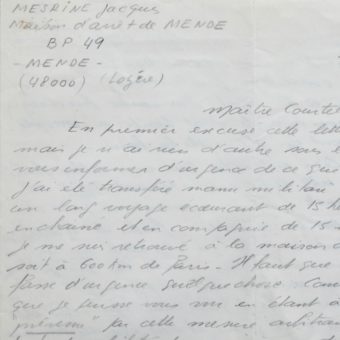 MESRINE Jacques
Maison d'arrêt de MENDE
BP 49
- MENDE -
(48000) (Lozère)
Maître Courtel
En premier excuse cette lett
mais je n'ai rien d'autre sous l
vous informer d'urgence de ce qui
j'ai été transféré manu militari
un long voyage écœurant de 15 h
enchainé et en compagnie de 15
je me suis retrouvé à la maison d
soit à 600 Km de Paris - Il faut que
fasse d'urgence quelque chose.
que je puisse vous en étant
prévenu" par cette mesure arbitrai